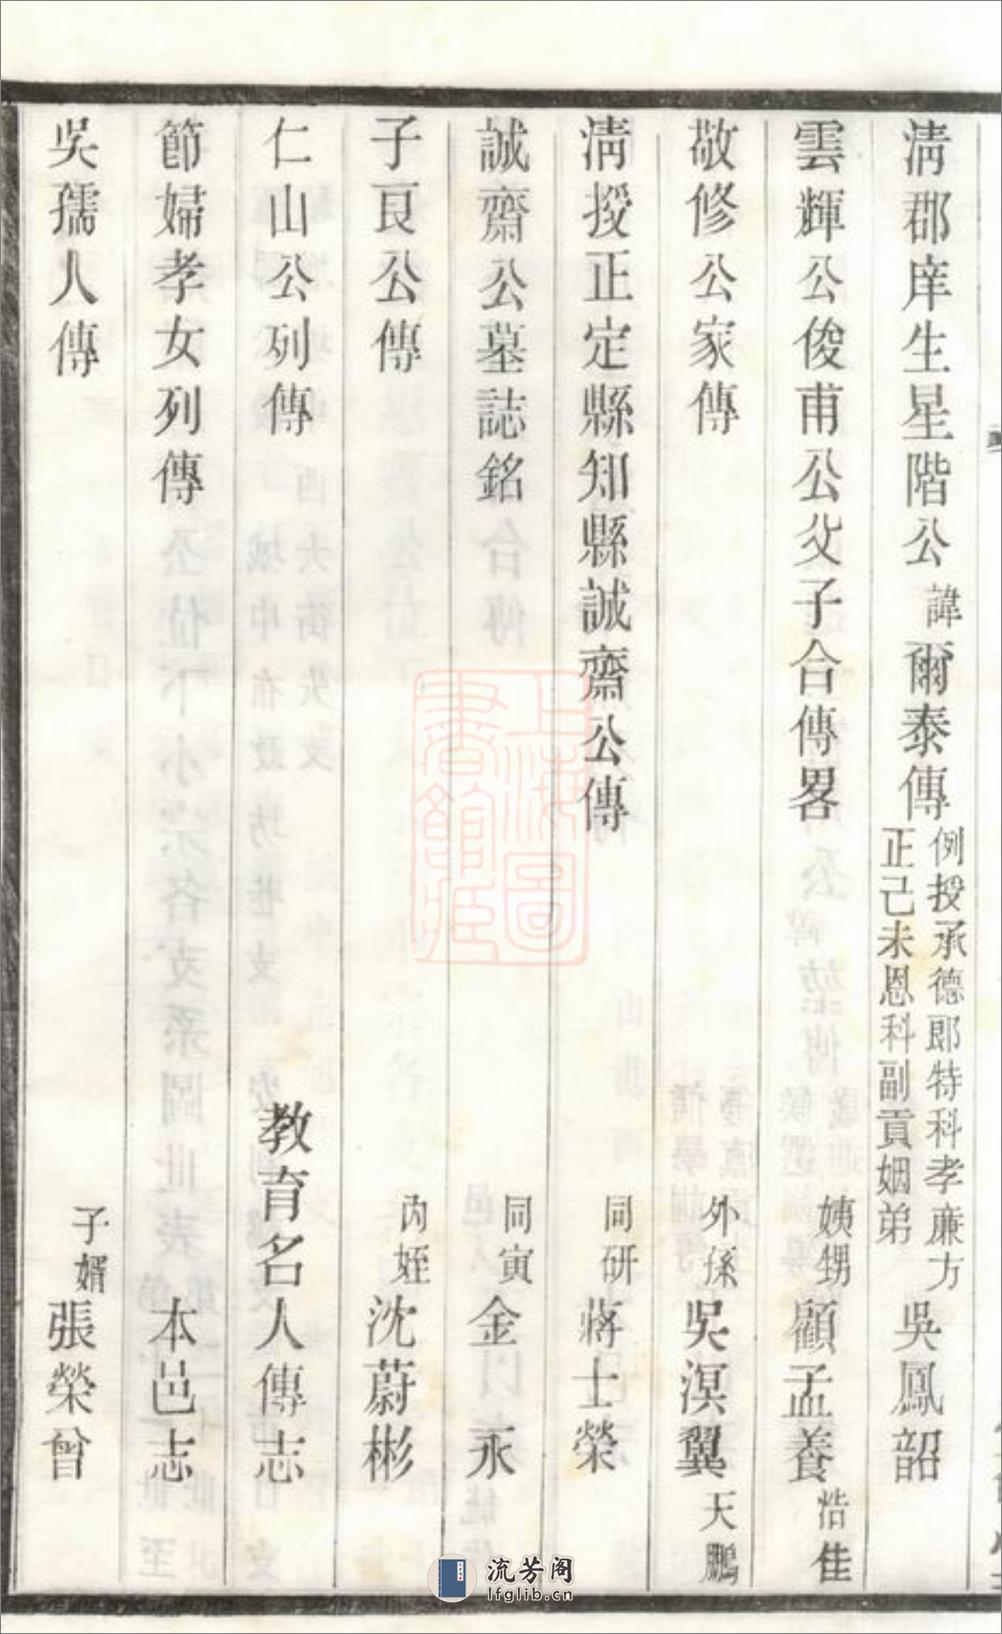 清郡庠生星階公諱爾泰傳例授承德郎特科孝廉方正己未恩科副貢姻弟吳鳳韶
雲輝公俊甫公父子合傳畧姨甥顧孟養浩佳
敬修公家傳外孫吳溟翼天鵬
清授正定縣知縣誠齋公傳同研蔣士榮
誠齋公墓誌銘同寅金永
子良公傳內姪沈蔚彬
仁山公列傳教育名人傳志
節婦孝女列傳本邑志
吳孺人傳子婿張榮曾
上海圖書館藏
流芳阁
lfglib.cn